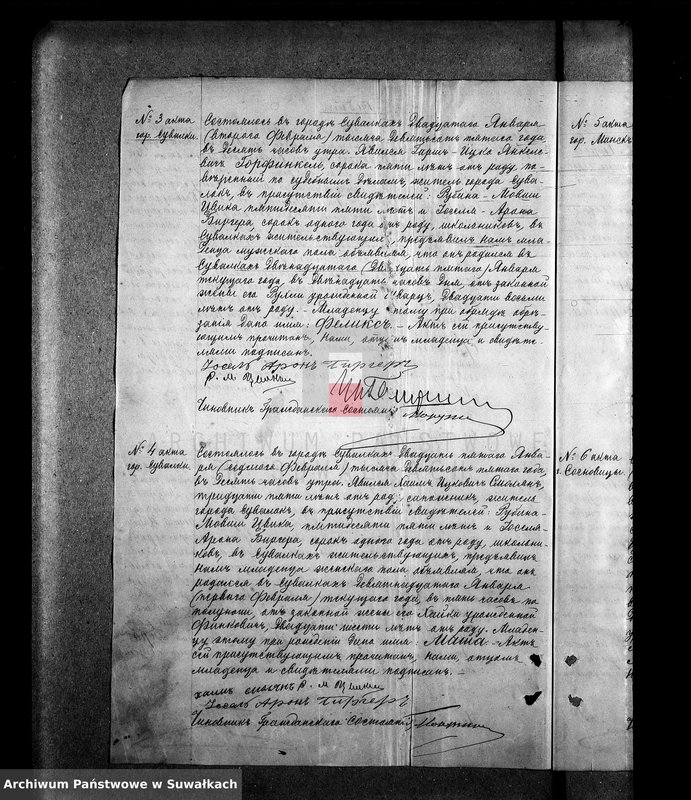 № 3 акта
гор. Сувалки.
Состоялось въ городѣ Сувалкахъ Двадцатаго Января
(второго Февраля) тысяча Девятьсотъ пятаго года
въ Десять часовъ утра. Явился Гиршъ-Ицко
вичъ сорока пяти лѣтъ отъ роду по-
вѣренный по судебнымъ Дѣламъ, житель города Сува-
локъ, въ присутствіи свидѣтелей: Рубина-Мовши
Цвика пятидесяти пяти лѣтъ и Іоселя-Арона
Биргера сорокъ одного года отъ роду, школьниковъ, въ
Сувалкахъ жительствующихъ, предъявилъ намъ мла-
денца мужескаго пола объявляя, что онъ родился въ
Сувалкахъ Двѣнадцатаго (Двадцать пятаго) Января
текущаго года, въ Двѣнадцать часовъ Дня, отъ законной
жены его урожденной Шварцъ, Двадцати восьми
лѣтъ отъ роду. - Младенцу этому при обрядѣ обрѣ-
занія дано имя: Феликсъ. - Актъ сей присутству-
ющимъ прочитанъ, нами, отцомъ младенца и свидѣте-
лями подписанъ.
Іосель Аронъ Биргеръ
Р. М. Цвикъ
Чиновникъ Гражданскаго Состоянія
№ 4 акта
гор. Сувалки.
Состоялось въ городѣ Сувалкахъ Двадцать пятаго Янва-
ря (седьмого Февраля) тысяча Девятьсотъ пятаго года
въ Десять часовъ утра. Явился Хаимъ Ицковичъ
тридцати пяти лѣтъ отъ роду, сапожникъ, житель
города Сувалокъ, въ присутствіи свидѣтелей: Рубина-
Мовши Цвика пятидесяти пяти лѣтъ и Іоселя-
Арона Биргера, сорокъ одного года отъ роду, школьни-
ковъ, въ Сувалкахъ жительствующихъ, предъявилъ
намъ младенца женскаго пола объявляя, что онъ
родился въ Сувалкахъ Девятнадцатаго Января
(перваго Февраля) текущаго года, въ пять часовъ по
полуночи, отъ законной жены его Хайки урожденной
Финковичъ, Двадцати шести лѣтъ отъ роду. Младен-
цу этому при рожденіи Дано имя: Маша. - Актъ
сей присутствующимъ прочитанъ, нами, отцомъ
младенца и свидѣтелями подписанъ. -
Хаимъ Р. М. Цвикъ
Іосель Аронъ Биргеръ
Чиновникъ Гражданскаго Состоянія
№ 5 акта
гор. Минскъ
№ 6 акта
г. Сосновицы.
ARCHIWUM PAŃSTWOWE
Archiwum Państwowe w Suwałkach